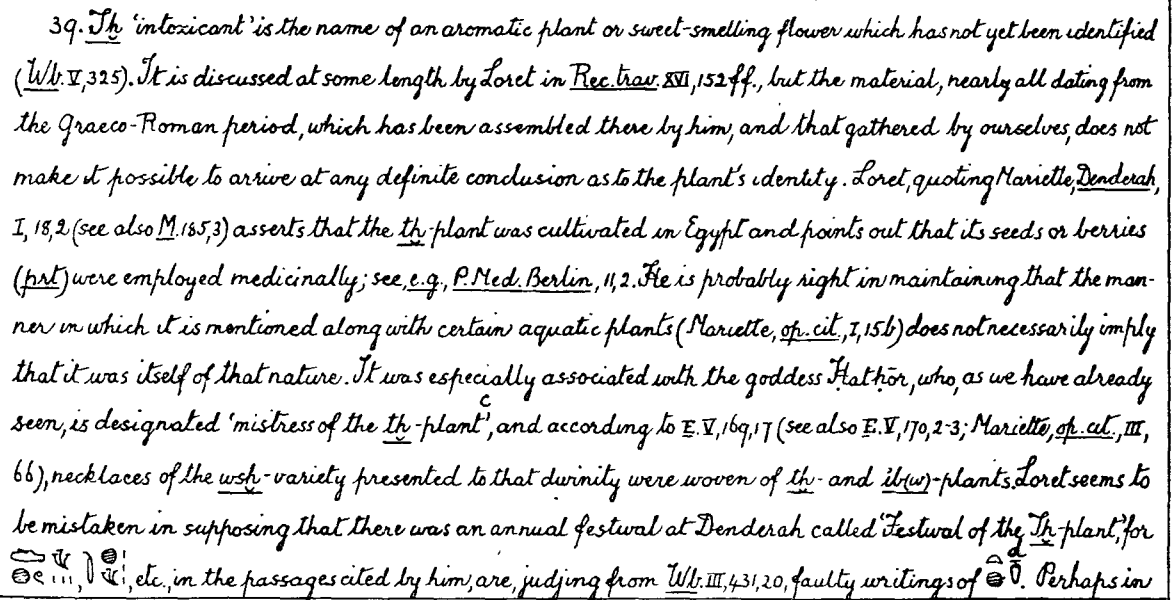 39. Tḫ 'intoxicant' is the name of an aromatic plant or sweet-smelling flower which has not yet been identified
(Wb. V, 325). It is discussed at some length by Loret in Rec. trav. XVI, 152 ff., but the material, nearly all dating from
the Graeco-Roman period, which has been assembled there by him, and that gathered by ourselves, does not
make it possible to arrive at any definite conclusion as to the plant's identity. Loret, quoting Mariette, Denderah,
I, 18, 2 (see also M. 185, 3) asserts that the tḫ-plant was cultivated in Egypt and points out that its seeds or berries
(prt) were employed medicinally; see, e.g., P. Med. Berlin, 11, 2. He is probably right in maintaining that the man-
ner in which it is mentioned along with certain aquatic plants (Mariette, op. cit., I, 15b) does not necessarily imply
that it was itself of that nature. It was especially associated with the goddess Ḥatḥōr, who, as we have already
seen, is designated 'mistress of the tḫ-plant'ᶜ, and according to E. V, 169, 17 (see also E. V, 170, 2-3; Mariette, op. cit., III,
66), necklaces of the wsḫ-variety presented to that divinity were woven of tḫ- and ib(w)-plants. Loret seems to
be mistaken in supposing that there was an annual festival at Denderah called 'Festival of the Tḫ-plant', for
, etc., in the passages cited by him, are, judging from Wb. III, 431, 20, faulty writings of ᵈ. Perhaps in